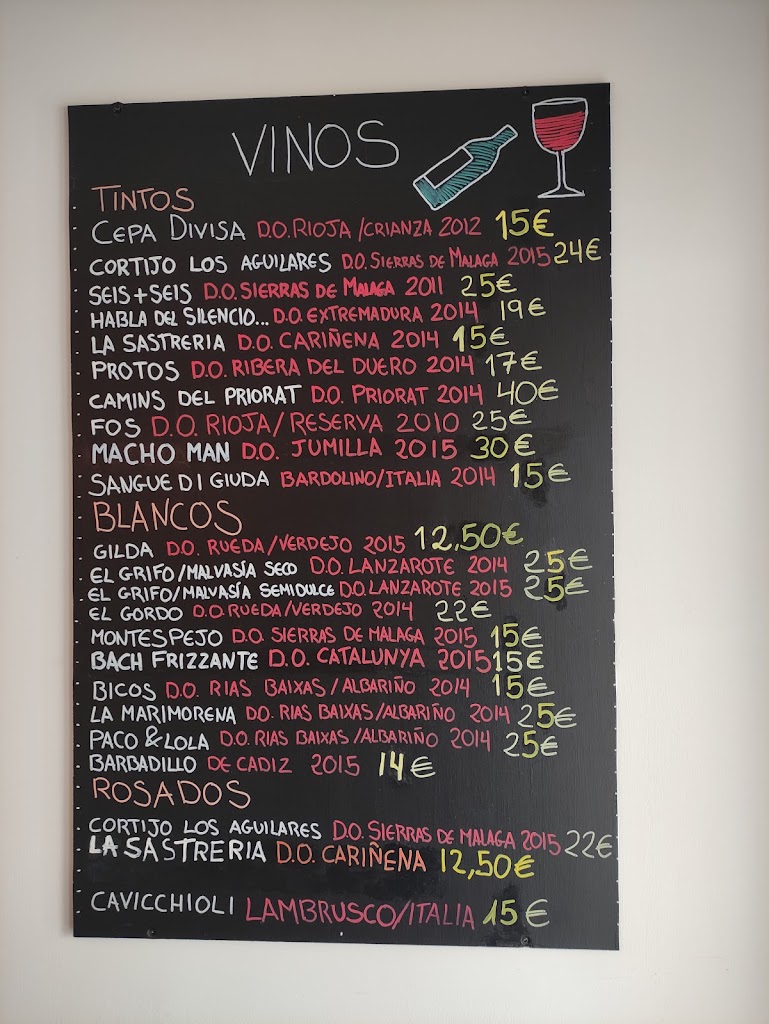 VINOS
TINTOS
CEPA DIVISA D.O. RIOJA/CRIANZA 2012 15€
CORTIJO LOS AGUILARES D.O. SIERRAS DE MALAGA 2015 24€
SEIS+SEIS D.O. SIERRAS DE MALAGA 2011 25€
HABLA DEL SILENCIO... D.O. EXTREMADURA 2014 19€
LA SASTRERIA D.O. CARIÑENA 2014 15€
PROTOS D.O. RIBERA DEL DUERO 2014 17€
CAMINS DEL PRIORAT D.O. PRIORAT 2014 40€
FOS D.O. RIOJA/RESERVA 2010 25€
MACHO MAN D.O. JUMILLA 2015 30€
SANGUE DI GIUDA BARDOLINO/ITALIA 2014 15€
BLANCOS
GILDA D.O. RUEDA/VERDEJO 2015 12,50€
EL GRIFO/MALVASÍA SECO D.O. LANZAROTE 2014 25€
EL GRIFO/MALVASÍA SEMIDULCE D.O. LANZAROTE 2015 25€
EL GORDO D.O. RUEDA/VERDEJO 2014 22€
MONTESPEJO D.O. SIERRAS DE MALAGA 2015 15€
BACH FRIZZANTE D.O. CATALUNYA 2015 15€
BICOS D.O. RIAS BAIXAS/ALBARIÑO 2014 15€
LA MARIMORENA D.O. RIAS BAIXAS/ALBARIÑO 2014 25€
PACO & LOLA D.O. RIAS BAIXAS/ALBARIÑO 2014 25€
BARBADILLO DE CADIZ 2015 14€
ROSADOS
CORTIJO LOS AGUILARES D.O. SIERRAS DE MALAGA 2015 22€
LA SASTRERIA D.O. CARIÑENA 12,50€
CAVICCHIOLI LAMBRUSCO/ITALIA 15€